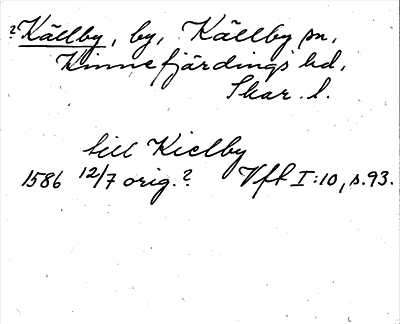 ?Källby, by, Källby sn,
Kinnefjärdings hd,
Skar. l.
till Kielby
1586 12/7 orig.? Vfft I:10, s.93.